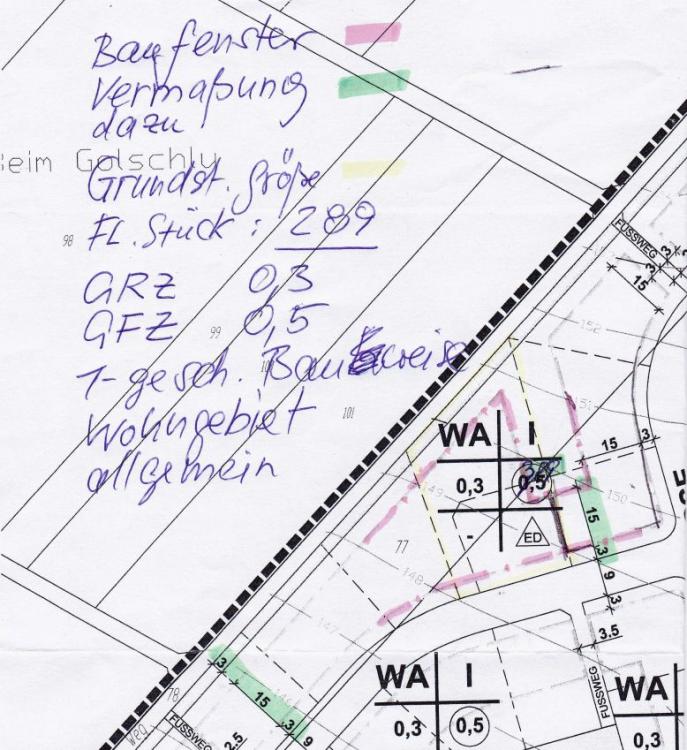 Baufenster
Vermaßung
dazu
eim Golschly
Grundst. größe
98
Fl. Stück : 289
GRZ 0,3
GFZ 0,5
99
1-gesch. Bauweise
101
Wohngebiet
allgemein
FUSSWEG
3
3
3
15
152
151
WA I
15
3
0,3
0,5
149
150
- ED
15
77
3
148
9
3
147
3.5
3
WA I
FUSSWEG
WA
15
78
0,3
0,5
3
9
0,3
Weg
FUSSWEG
2.5